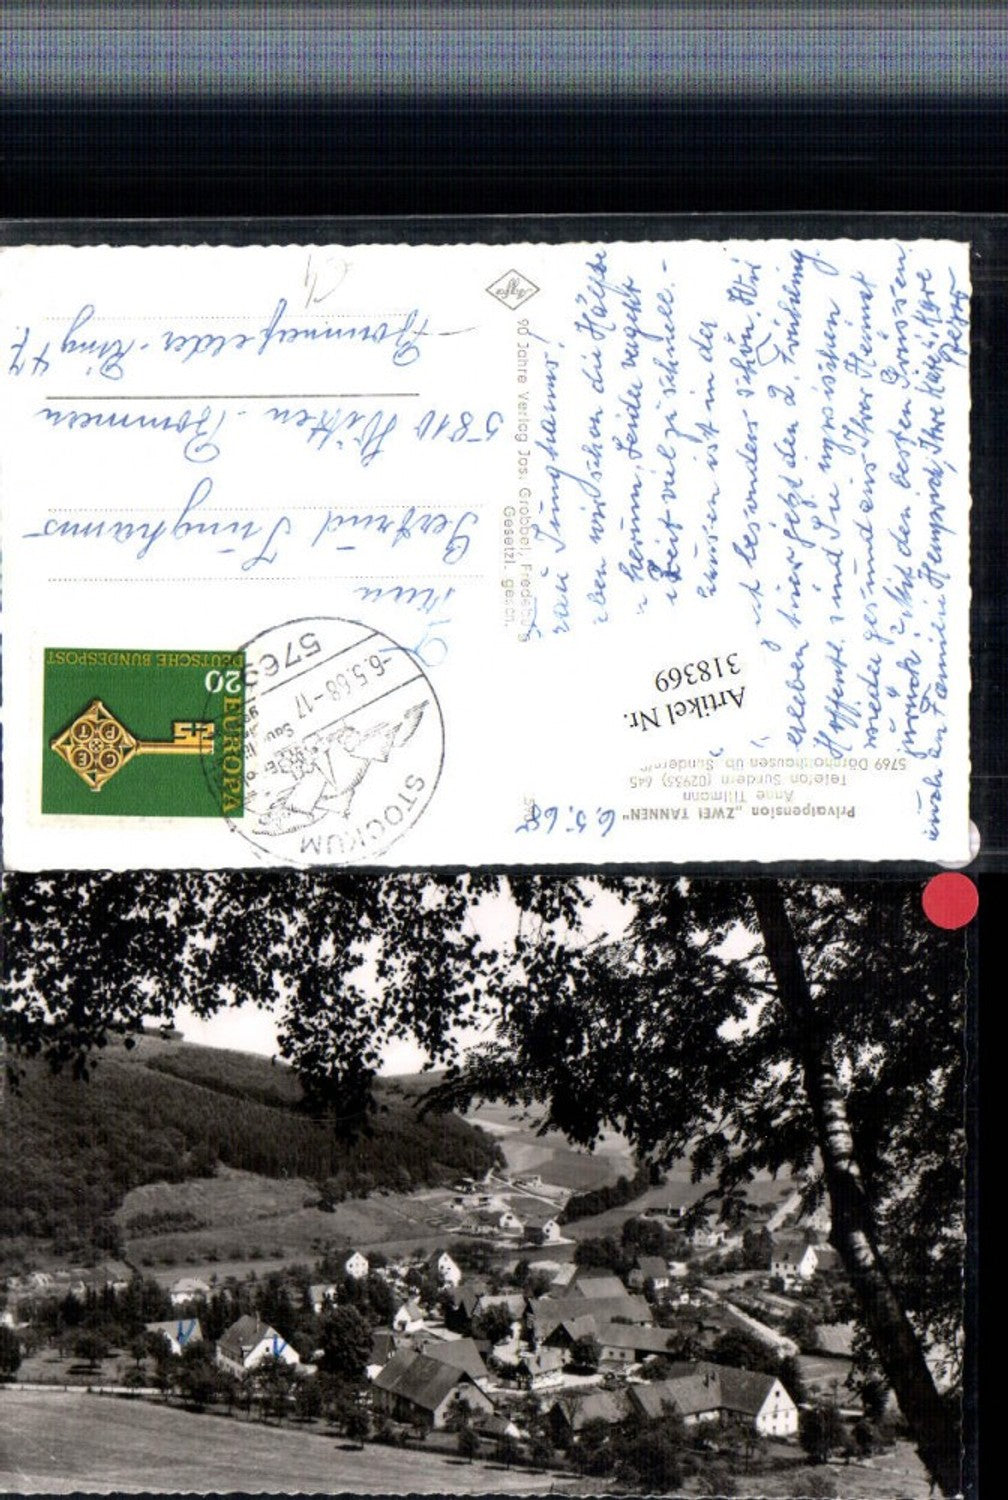 Privatpension „ZWEI TANNEN"
Anne Tillmann
Telefon Sundern (02933) 645
5769 Dörnholthausen üb. Sundern
6.5.68
Jünghanns!
eben wir schon die Hälfte
herum. Leider vergeht
Zeit viel zu schnell.-
hausen ist in der
t besonders schön. Wir
erleben hier jetzt den 2. Frühling
Hoffentl. sind Sie inzwischen
wieder gesund aus Ihrer Heimat
zurück? Mit den besten Grüssen
auch an Familie Heinrich, Ihre Käte u. Kare
Peter
90 Jahre Verlag Jos. Grobbel, Fredeburg
Gesetzl. gesch.
Agfa
Artikel Nr.
318369
STOCKUM
5769
-6.5.68-17
DEUTSCHE BUNDESPOST
20
EUROPA
CEPT
Gertrud Jünghanns
5810 Witten-Bommern
Bommerfelder-Ring 47.